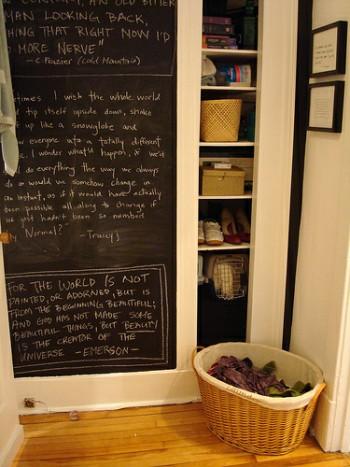 AN OLD BITTER
MAN LOOKING BACK,
THING THAT RIGHT NOW I'D
MORE NERVE"
- C. Frazier (Cold Mountain)
times I wish the whole world
tip itself upside down, shake
up like a snowglobe and
everyone into a totally different
I wonder what'd happen, if we'd
do everything the way we always
do or would we somehow change in
an instant, as if it would have actually
been possible all along to change if
we just hadn't been so numbed
by Normal?"
- Tracy J
FOR THE WORLD IS NOT
PAINTED, OR ADORNED, BUT IS
FROM THE BEGINNING BEAUTIFUL;
AND GOD HAS NOT MADE SOME
BEAUTIFUL THINGS, BUT BEAUTY
IS THE CREATOR OF THE
UNIVERSE - EMERSON -